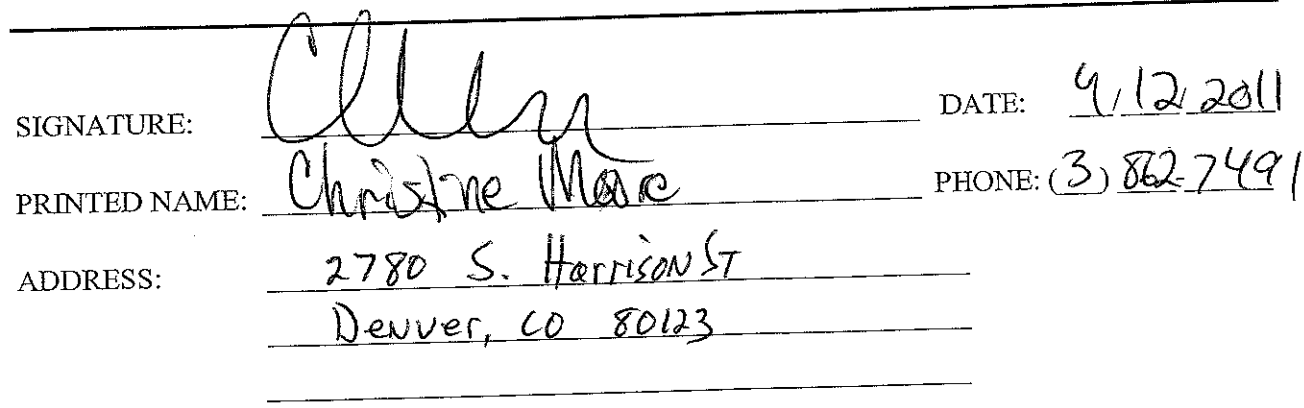 SIGNATURE: DATE: 9/12/2011
PRINTED NAME: Christine PHONE: (3) 862-7491
ADDRESS: 2780 S. Harrison ST
Denver, CO 80123